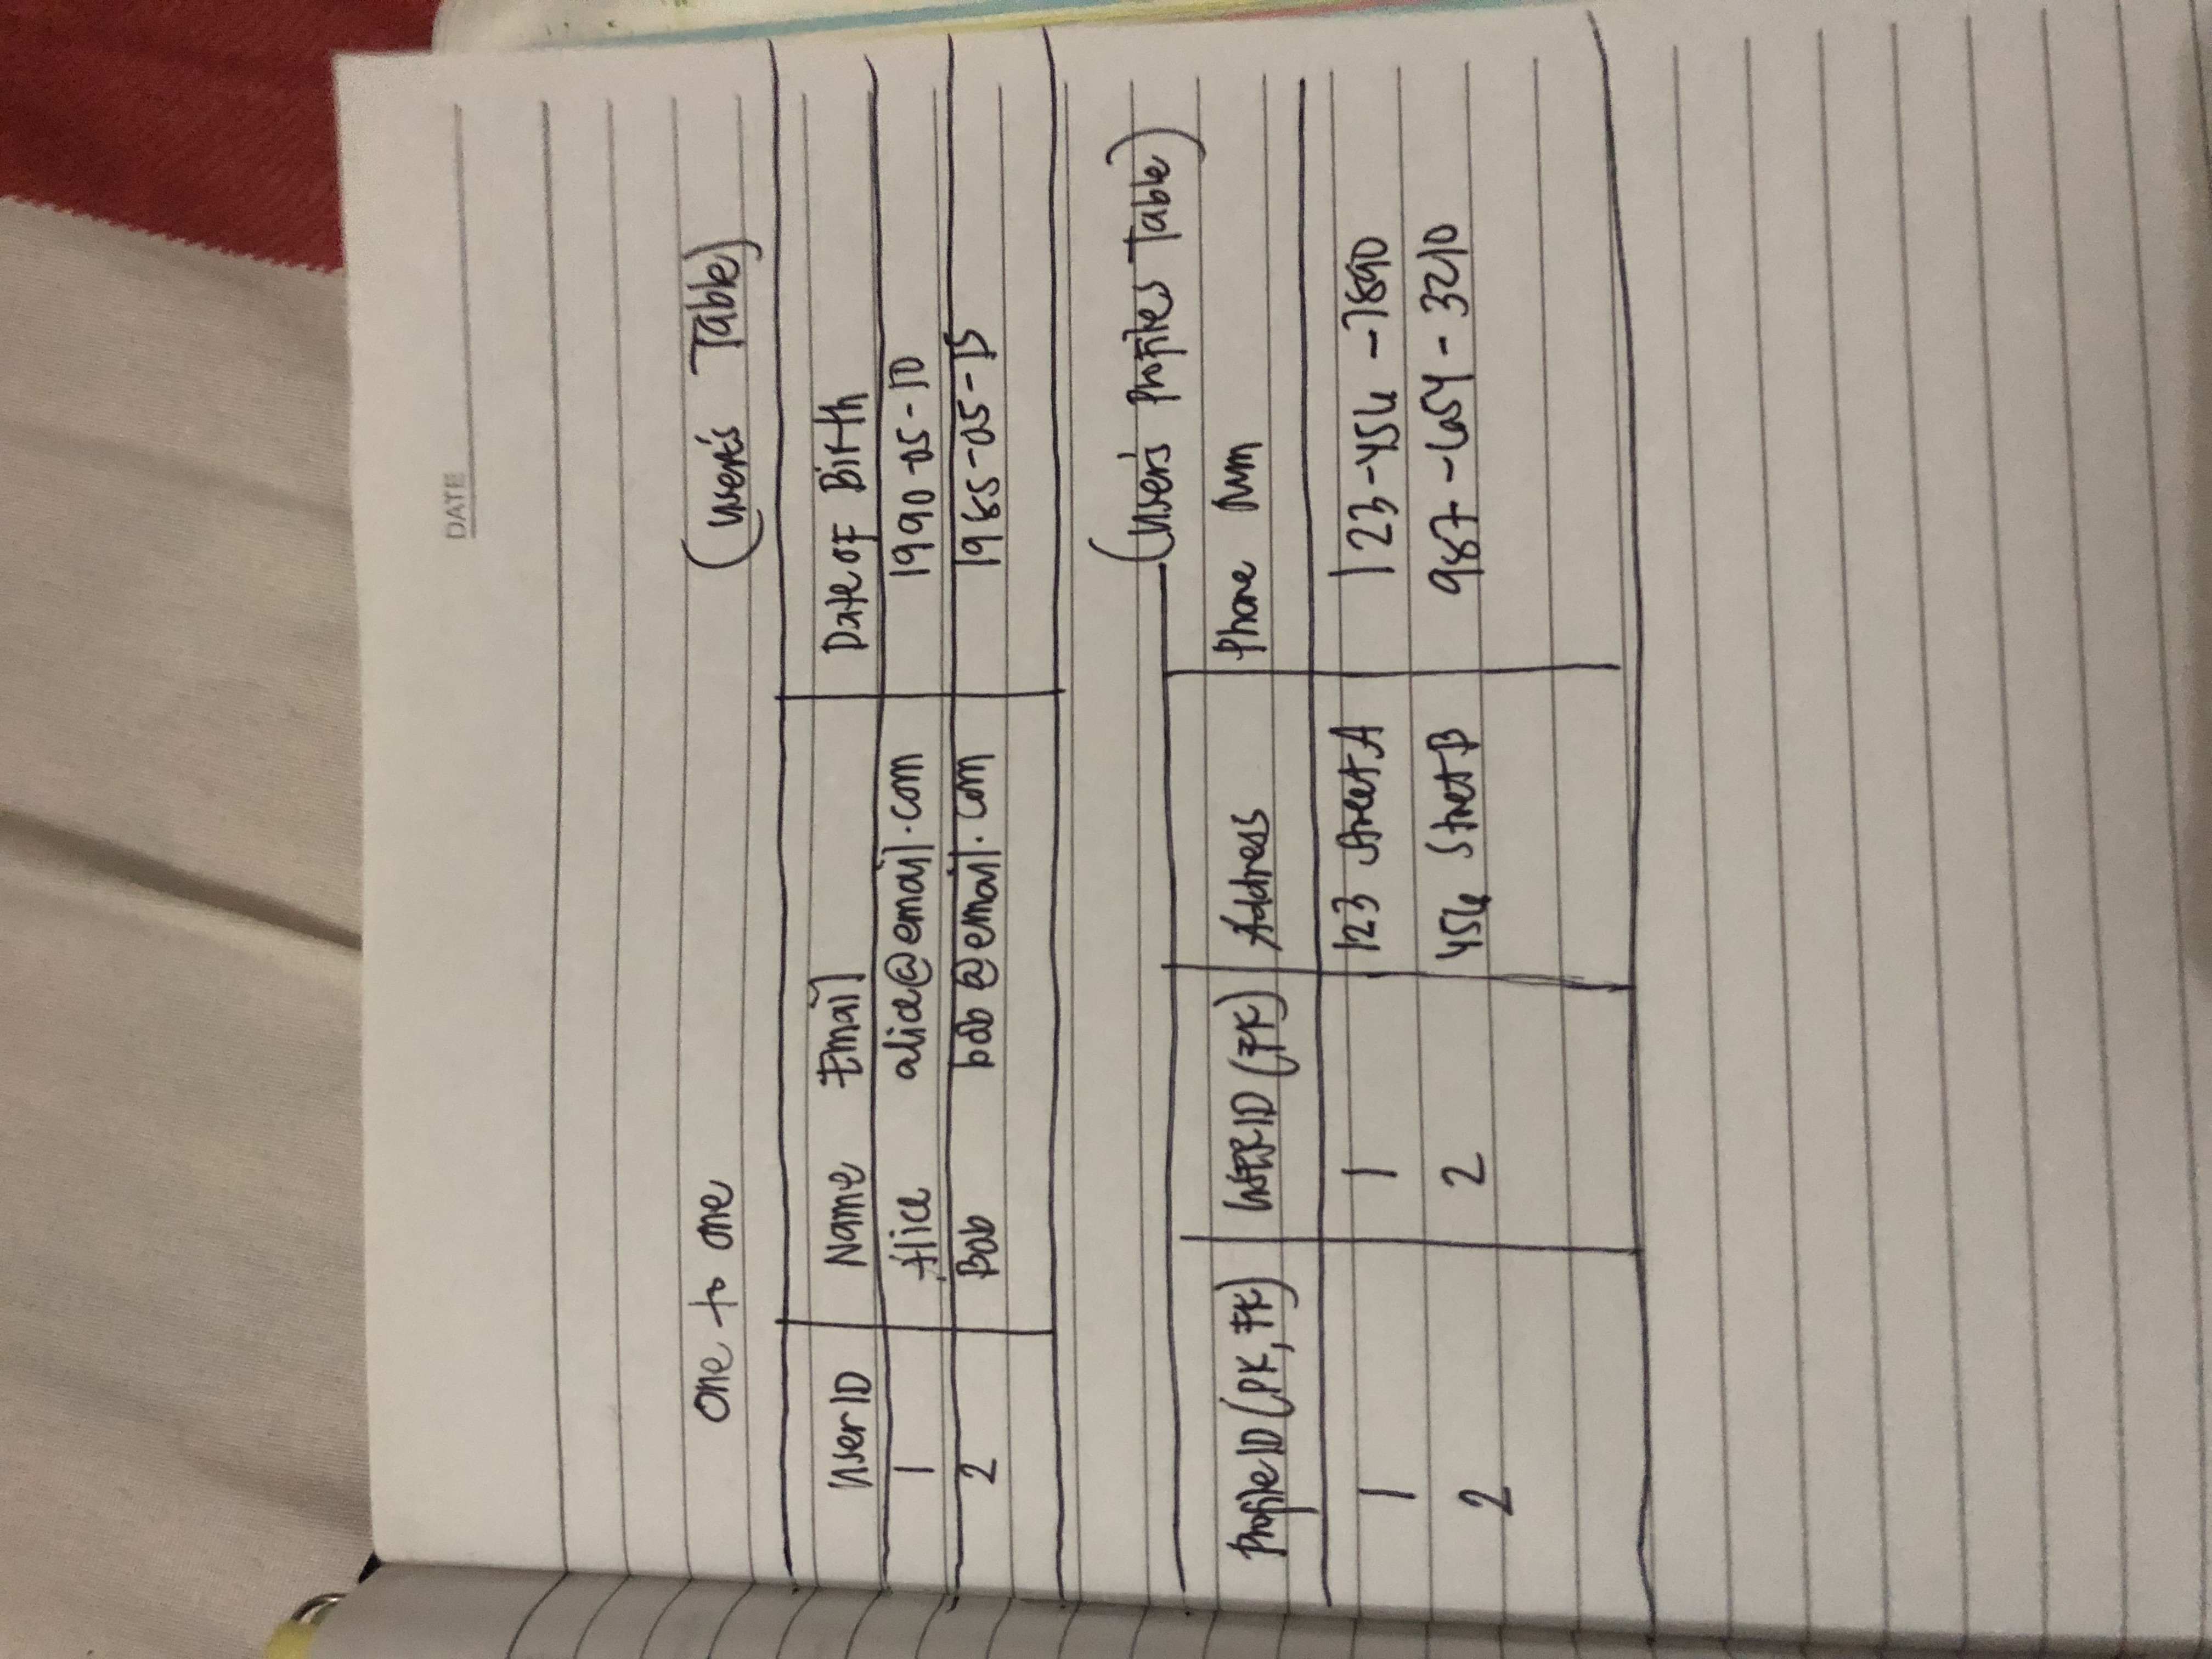 DATE
One to one (User's Table)
User ID Name Email Date of Birth
1 Alice alice@email.com 1990-05-10
2 Bob bob@email.com 1985-05-15
(User's Profiles Table)
Profile ID (PK, FK) USER ID (FK) Address Phone Num
1 1 123 Street A 123-456-7890
2 2 456 Street B 987-654-3210